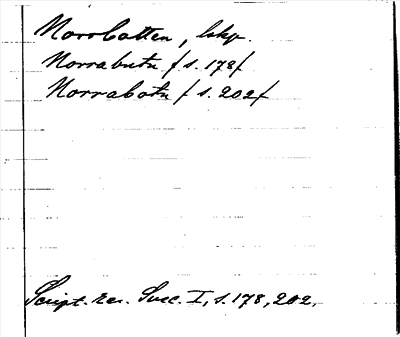 Norrbotten, lskp.
Norrabutn / s. 178/
Norrabotn / s. 202/
Script. rer. Svec. I, s. 178, 202.